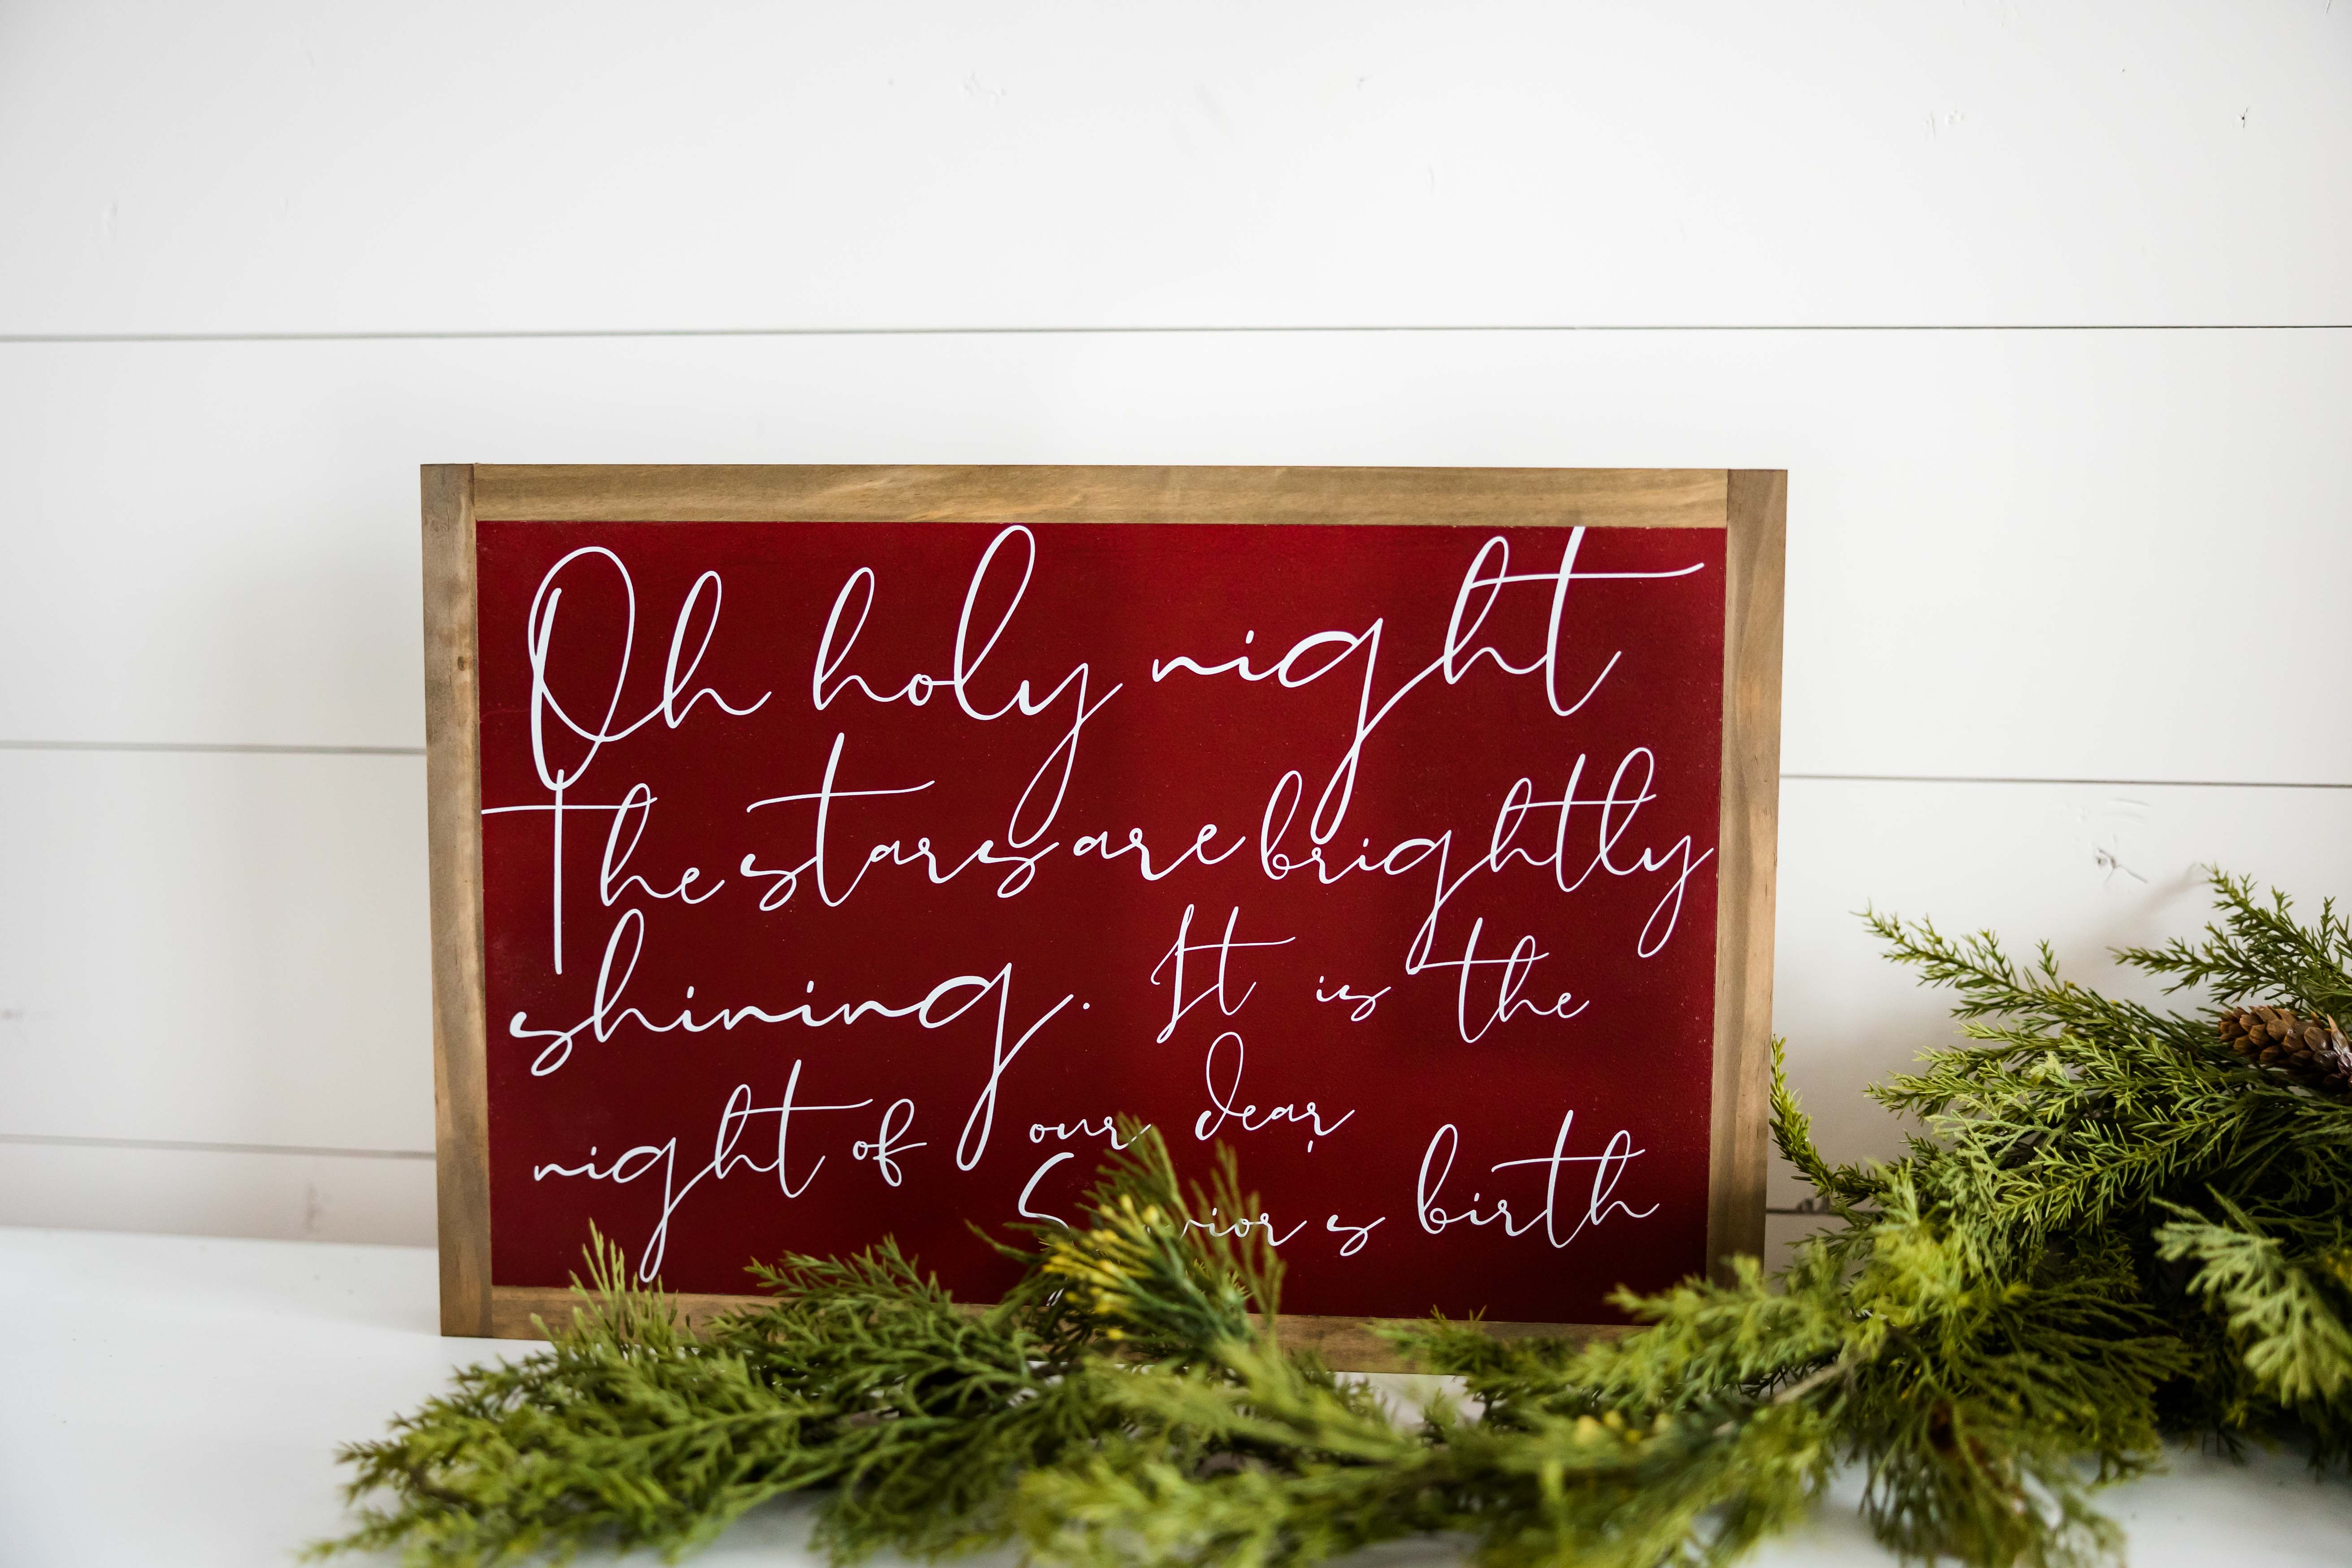 Oh holy night
The stars are brightly
shining. It is the
night of our dear
s birth